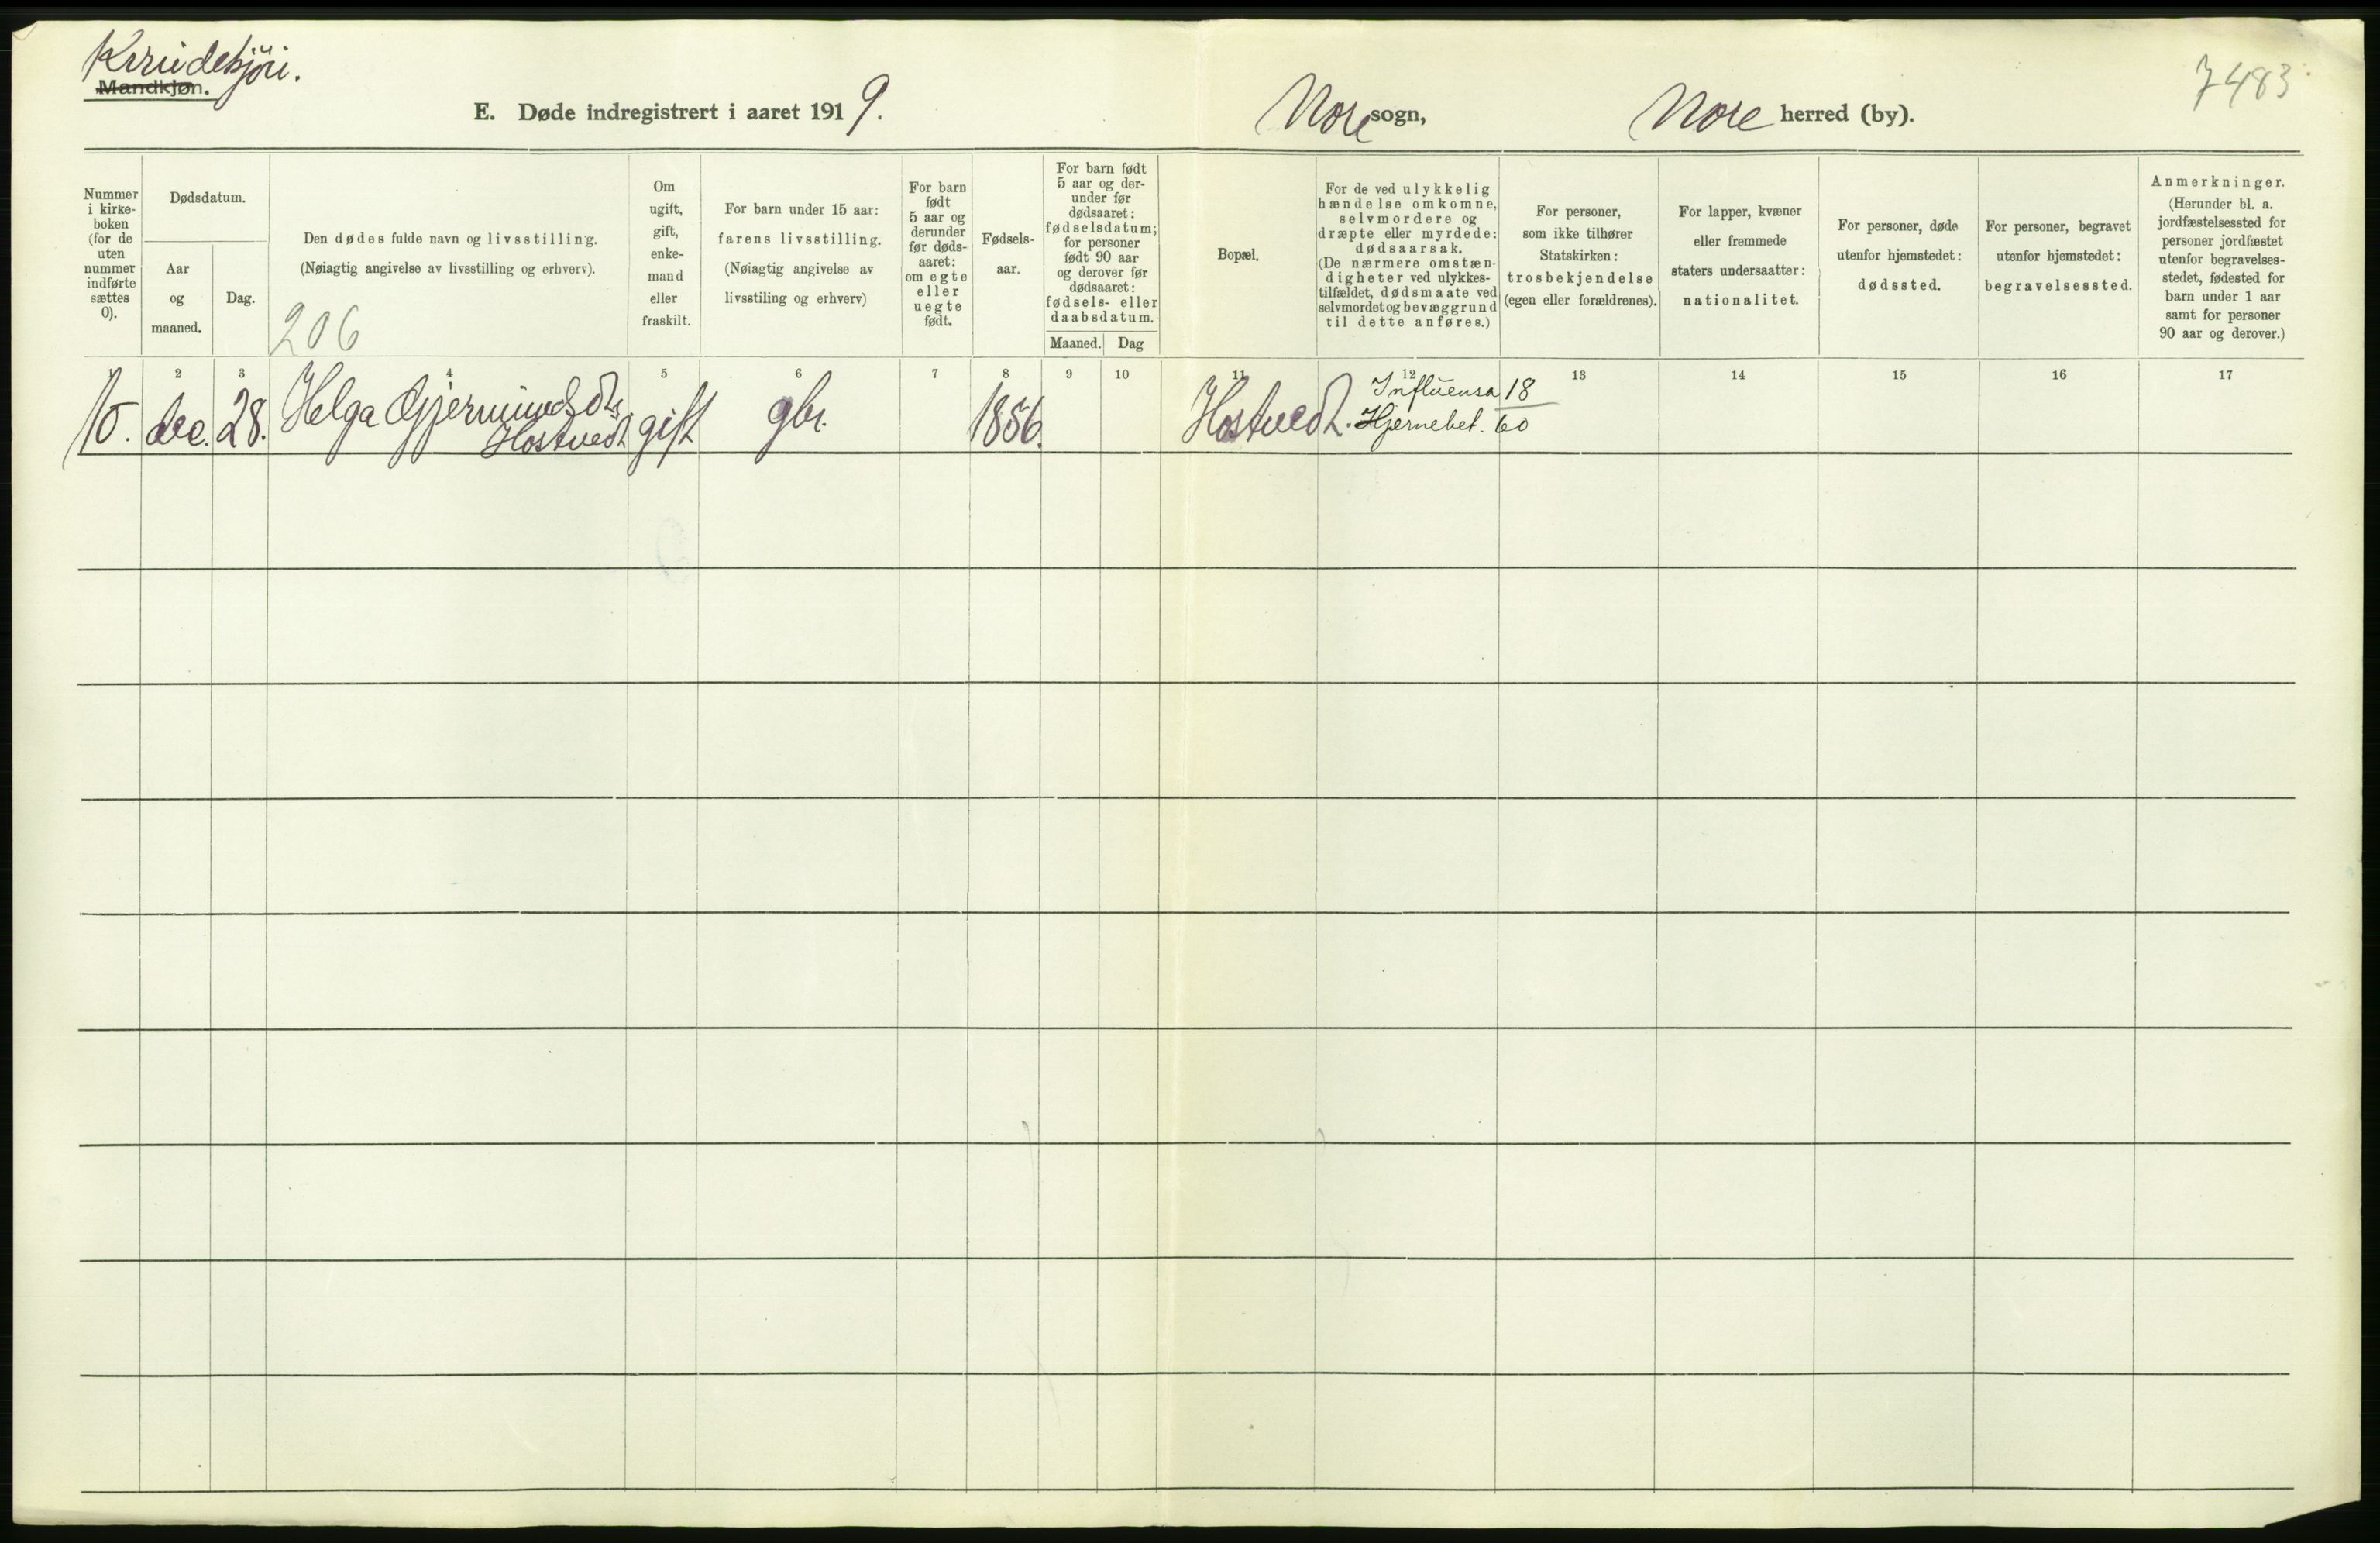 Kvindekjön.
Mandkjøn.
7483
E. Døde indregistrert i aaret 1919.
Nore sogn,
Nore herred (by).
Nummer
i kirke-
boken
(for de
uten
nummer
indførte
sættes
0).
Dødsdatum.
Aar
og
maaned.
Dag.
Den dødes fulde navn og livsstilling.
(Nøiagtig angivelse av livsstilling og erhverv).
206
Om
ugift,
gift,
enke-
mand
eller
fraskilt.
For barn under 15 aar:
farens livsstilling.
(Nøiagtig angivelse av
livsstiling og erhverv)
For barn
født
5 aar og
derunder
før døds-
aaret:
om egte
eller
uegte
født.
Fødsels-
aar.
For barn født
5 aar og der-
under før
dødsaaret:
fødselsdatum;
for personer
født 90 aar
og derover før
dødsaaret:
fødsels- eller
daabsdatum.
Maaned. Dag
Bopæl.
For de ved ulykkelig
hændelse omkomne,
selvmordere og
dræpte eller myrdede:
dødsaarsak.
(De nærmere omstæn-
digheter ved ulykkes-
tilfældet, dødsmaate ved
selvmordet og bevæggrund
til dette anføres.)
For personer,
som ikke tilhører
Statskirken:
trosbekjendelse
(egen eller forældrenes).
For lapper, kvæner
eller fremmede
staters undersaatter:
nationalitet.
For personer, døde
utenfor hjemstedet:
dødssted.
For personer, begravet
utenfor hjemstedet:
begravelsessted.
Anmerkninger.
(Herunder bl. a.
jordfæstelsessted for
personer jordfæstet
utenfor begravelses-
stedet, fødested for
barn under 1 aar
samt for personer
90 aar og derover.)
1 2 3 4 5 6 7 8 9 10 11 12 13 14 15 16 17
10. dec. 28. Helga Gjermundsdtr. gift gbr. 1856. Hostvedt. Influensa 18
Hostvedt Hjernebet. 60